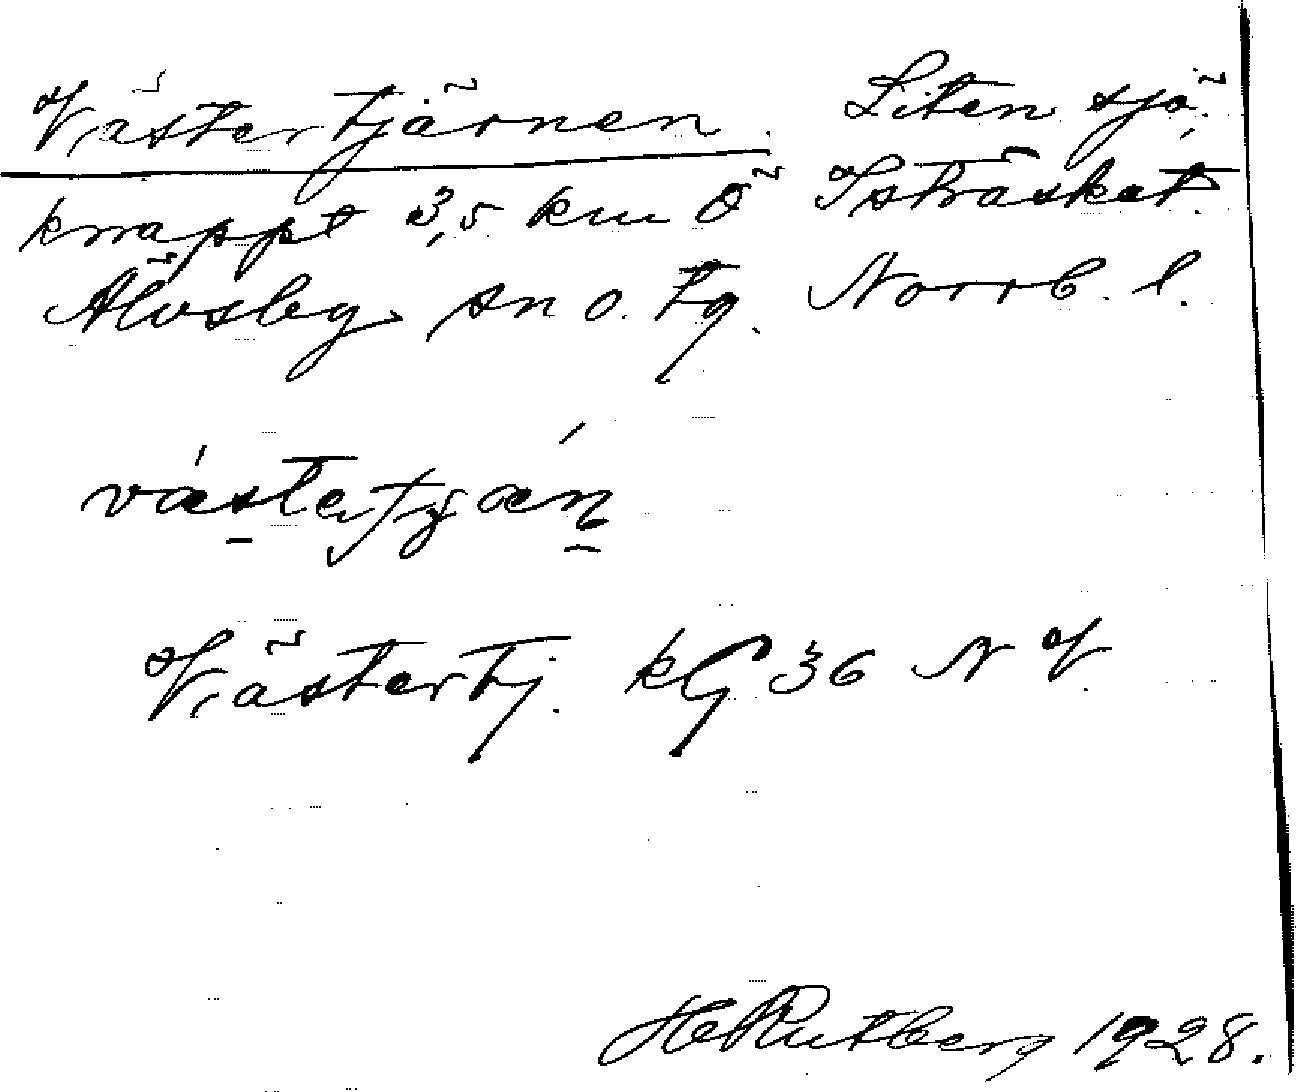 Västertjärnen. Liten sjö.
knappt 3,5 km Ö Isträsket.
Älvsby sn o. tg. Norrb. l.
Västertj. kG 36 NV
H Rutberg 1928.